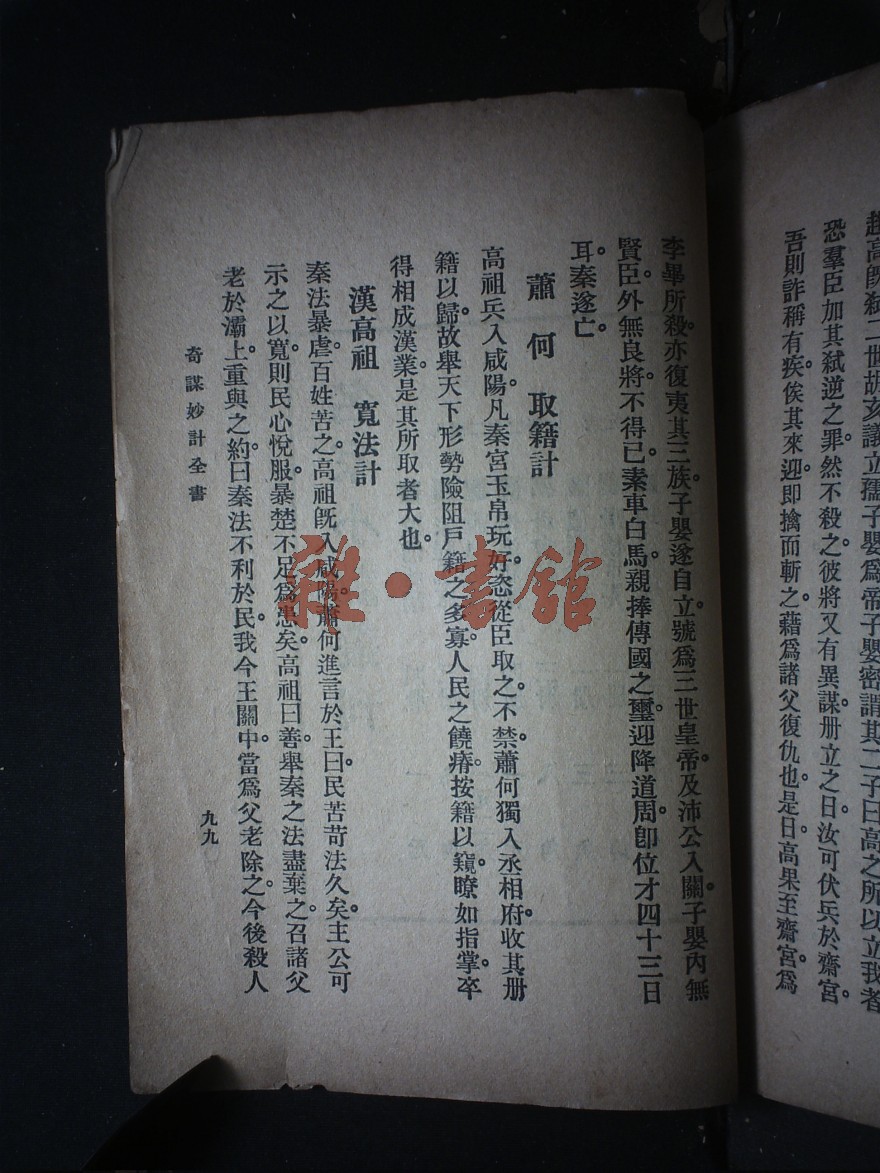 趙高既弒二世胡亥議立孺子嬰爲帝子嬰密謂其二子曰高之所以立我者
恐羣臣加其弒逆之罪然不殺之彼將又有異謀册立之日汝可伏兵於齋宮。
吾則詐稱有疾俟其來迎即擒而斬之藉爲諸父復仇也。是日高果至齋宮爲
李畢所殺。亦復夷其三族。子嬰遂自立。號爲三世皇帝。及沛公入關。子嬰內無
賢臣。外無良將。不得已。素車白馬。親捧傳國之璽。迎降道周。卽位才四十三日
耳。秦遂亡。
蕭何 取籍計
高祖兵入咸陽。凡秦宮玉帛玩好。恣從臣取之。不禁。蕭何獨入丞相府。收其册
籍以歸。故舉天下形勢險阻。戶籍之多寡。人民之饒瘠。按籍以窺。瞭如指掌。卒
得相成漢業。是其所取者大也。
漢高祖 寬法計
秦法暴虐。百姓苦之。高祖旣入咸陽。蕭何進言於王曰。民苦苛法久矣。主公可
示之以寬。則民心悅服。暴楚不足爲患矣。高祖曰善。舉秦之法盡棄之。召諸父
老於灞上。重與之約曰。秦法不利於民。我今王關中。當爲父老除之。今後殺人
奇謀妙計全書
九九
雜·書館